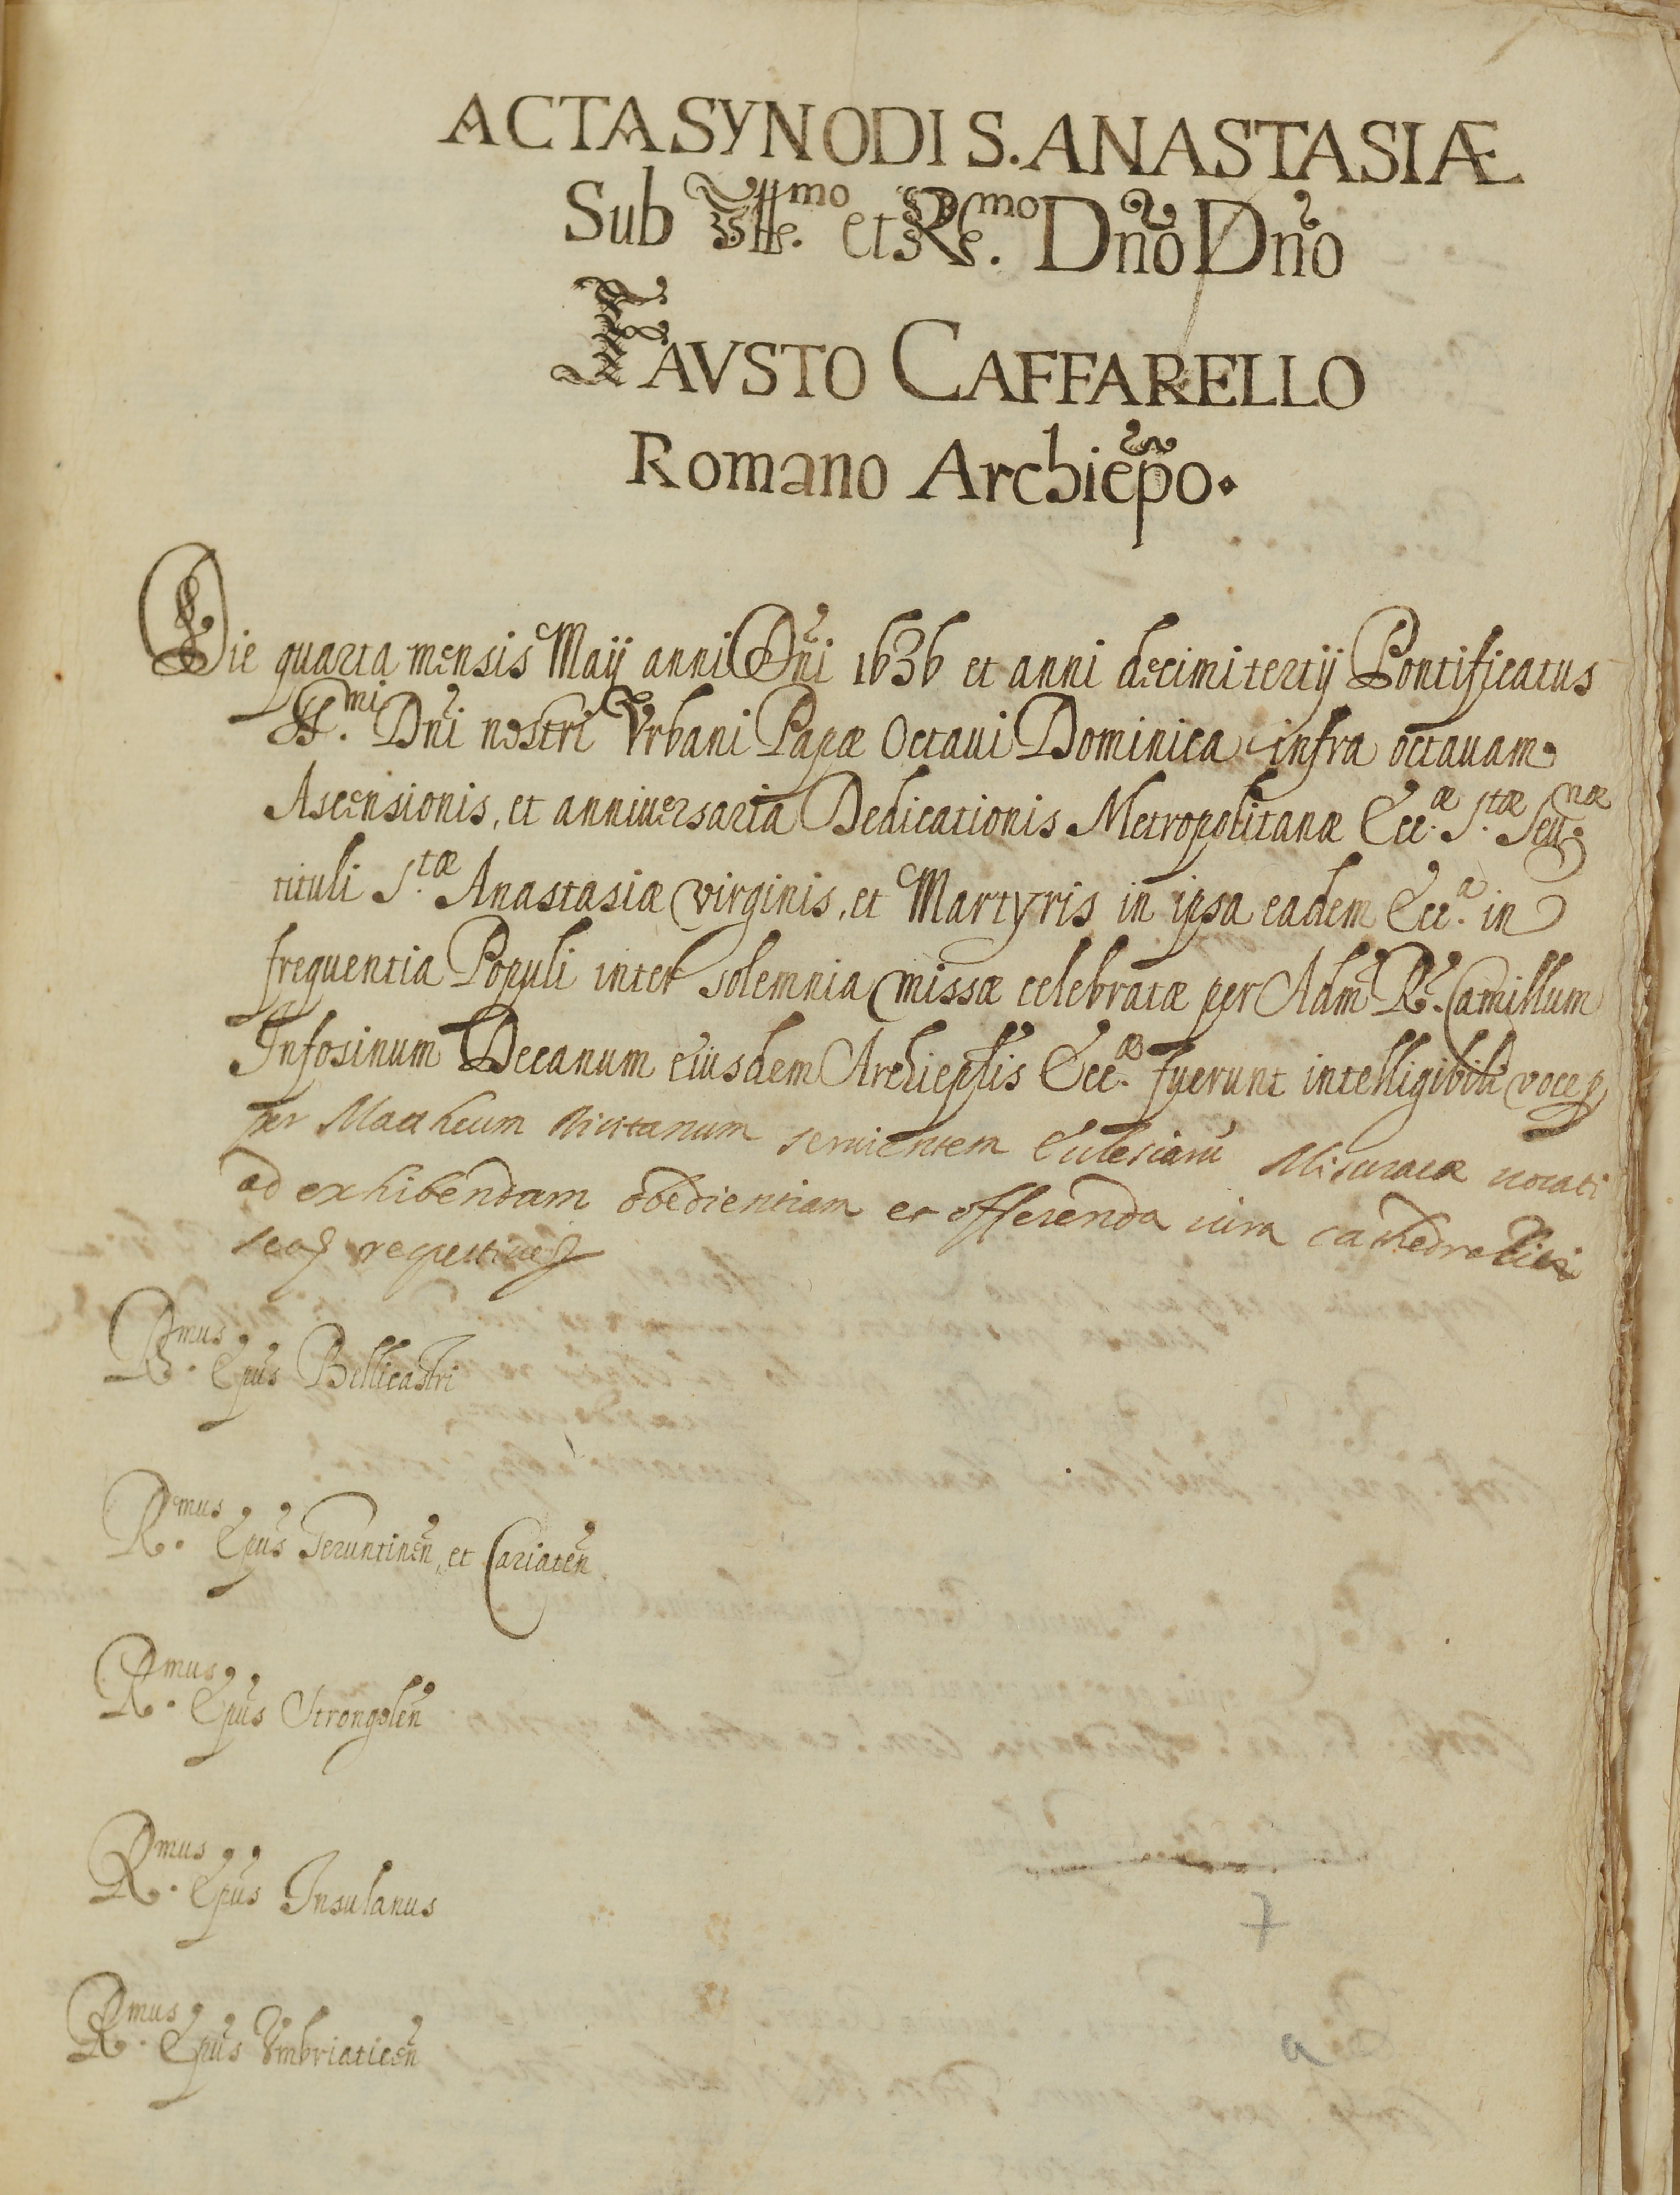 ACTA SYNODI S. ANASTASIÆ
Sub Ill.mo et R.mo Dño Dño
FAVSTO CAFFARELLO
Romano Archiep̃o.
Die quarta mensis Maij anni Dñi 1636 et anni decimitertij Pontificatus
SS.mi Dñi nostri Vrbani Papæ Octaui Dominica infra octauam
Ascensionis, et anniuersaria Dedicationis Metropolitanæ Ecc.æ S.tæ Seu.næ
tituli S.tæ Anastasiæ virginis, et Martyris in ipsa eadem Ecc.a in
frequentia Populi inter solemnia missæ celebratæ per Adm̃ R. Camillum
Infosinum Decanum eiusdem Archiep̃lis Ecc.æ fuerunt intelligibili voce
per Mattheum seruientem Ecclesiarũ uocati
ad exhibendam obedientiam et offerenda iura cathedratici
R.mus Ep̃us Bellicastri
R.mus Ep̃us Geruntineñ, et Cariateñ
R.mus Ep̃us Strongoleñ
R.mus Ep̃us Insulanus
R.mus Ep̃us Vmbriaticeñ
7
a